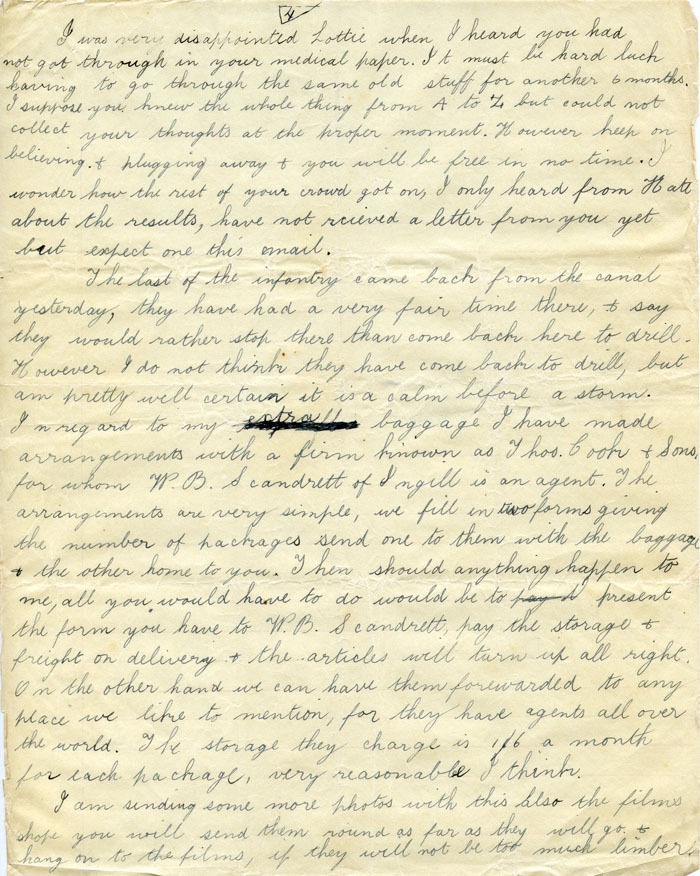 4
I was very disappointed Lottie when I heard you had
not got through in your medical paper. It must be hard luck
having to go through the same old stuff for another 6 months.
I suppose you knew the whole thing from A to Z but could not
collect your thoughts at the proper moment. However keep on
believing. & plugging away & you will be free in no time. I
wonder how the rest of your crowd got on, I only heard from Hatt
about the results, have not rcieved a letter from you yet
but expect one this mail.
The last of the infantry came back from the canal
yesterday, they have had a very fair time there, & say
they would rather stop there than come back here to drill.
However I do not think they have come back to drill, but
am pretty well certain it is a calm before a storm.
In regard to my baggage I have made
arrangements with a firm known as Thos. Cook & Sons,
for whom W. B. Scandrett of Ingill is an agent. The
arrangements are very simple, we fill in two forms giving
the number of packages send one to them with the baggage
& the other home to you. Then should anything happen to
me, all you would have to do would be to pay it present
the form you have to W. B. Scandrett, pay the storage &
freight on delivery & the articles will turn up all right.
On the other hand we can have them forewarded to any
place we like to mention, for they have agents all over
the world. The storage they charge is 1/6 a month
for each package, very reasonable I think.
I am sending some more photos with this also the films
shope you will send them round as far as they will go. &
hang on to the films, if they will not be too much limber.